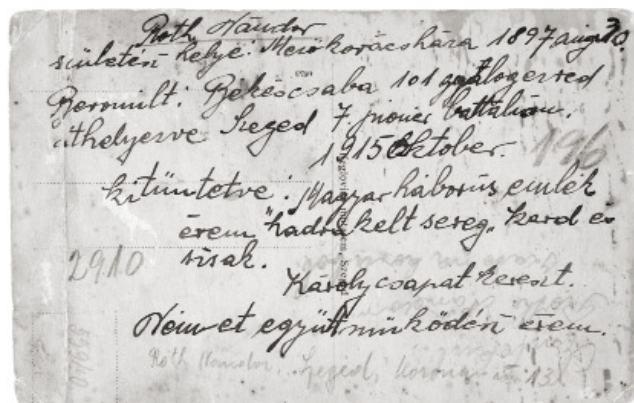 Róth Nándor
születési helye: Mezőkovácsháza 1897 aug 20.
Bevonult: Békéscsaba 101 gyalogezred
áthelyezve Szeged 7. pionier battalion.
1915 Oktober.
196
kitüntetve: Magyar háborús emlék
érem "hadra kelt sereg" kard és
sisak.
2910
Károly csapat kereszt.
Német együttműködési érem.
Róth Nándor. Szeged,